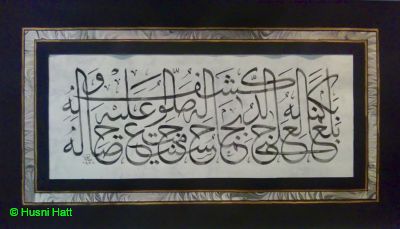 بلغ العلى بكماله كشف الدجى بجماله حسنت جميع خصاله صلوا عليه وآله
© Husni Hatt